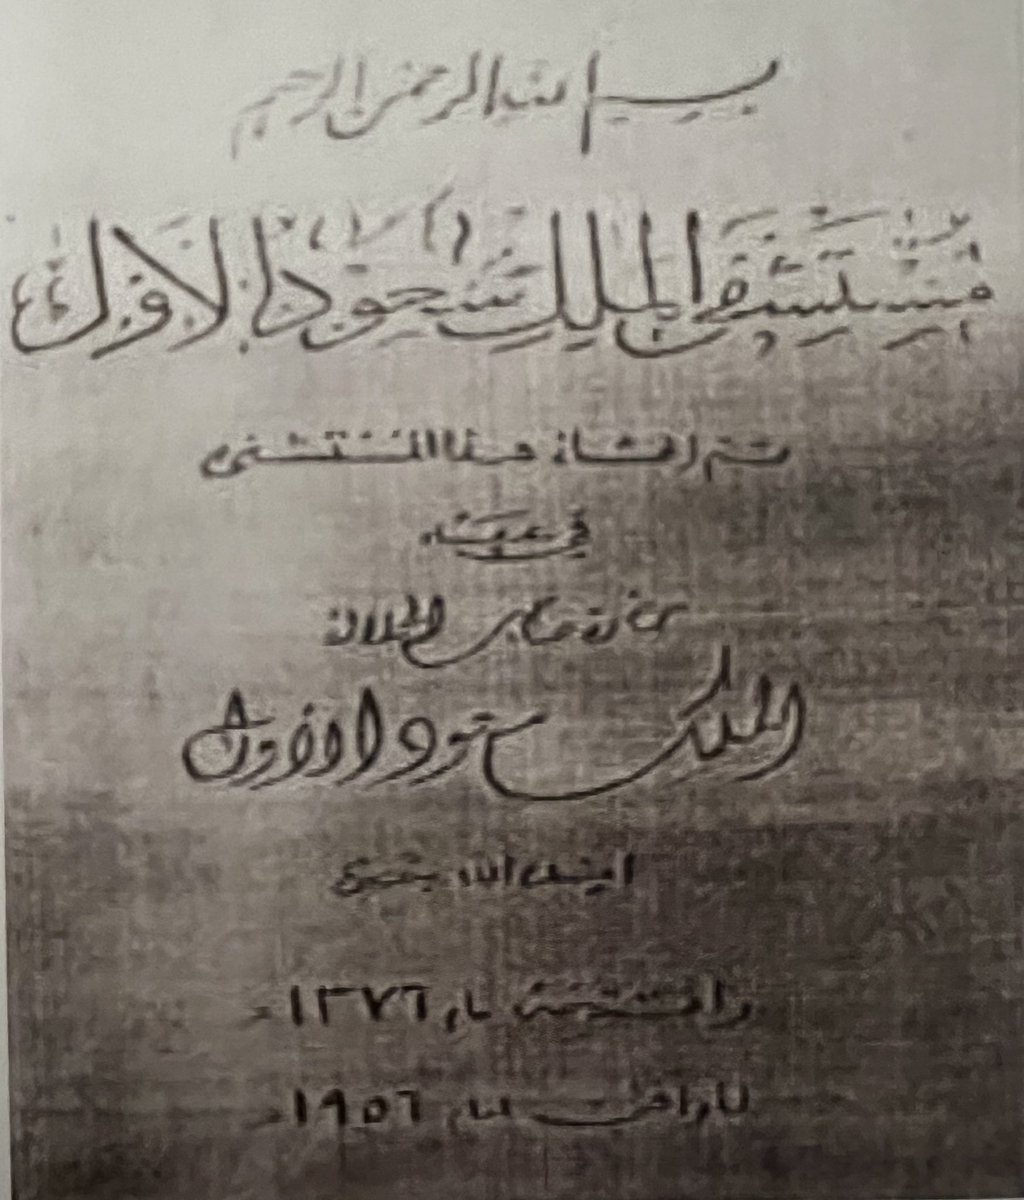 بسم الله الرحمن الرحيم
مستشفى الملك سعود الأول
تم إنشاء هذا المستشفى
في عهد
صاحب الجلالة
الملك سعود الأول
الله
وافتتحه عام ١٣٧٦هـ
الموافق عام ١٩٥٦م